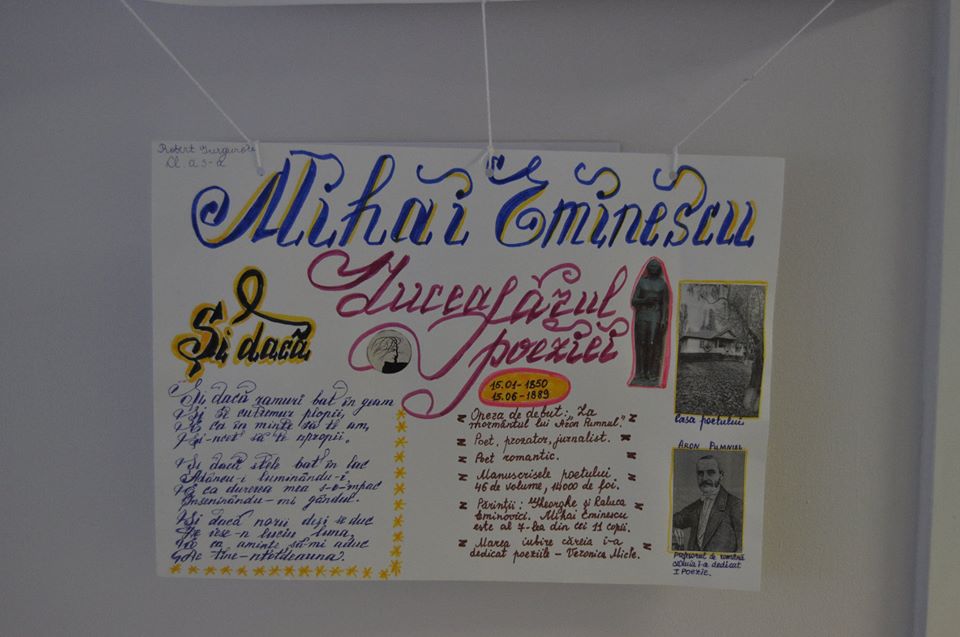 Robert
Cl. a 5-a
Mihai Eminescu
Luceafărul
poeziei
Și dacă
15.01-1850
15.06-1889
Și dacă ramuri bat în geam
Și se cutremur plopii,
E ca în minte să te am,
Și-ncet să te apropii.
Și dacă stele bat în lac
Adâncu-i luminându-i,
E ca durerea mea s-o-mpac
Înseninându-mi gândul.
Și dacă norii deși se duc
De iese-n luciu luna,
E ca aminte să-mi aduc
De tine-ntotdeauna.
Opera de debut: "La
mormântul lui Aron Pumnul."
Poet, prozator, jurnalist.
Poet romantic.
Manuscrisele poetului
46 de volume, 14000 de foi.
Părinții: Gheorghe și Raluca
Eminovici. Mihai Eminescu
este al 7-lea din cei 11 copii.
Marea iubire căreia i-a
dedicat poeziile - Veronica Micle.
Casa poetului
ARON PUMNUL
Profesorul de română
căruia i-a dedicat
I Poezie.